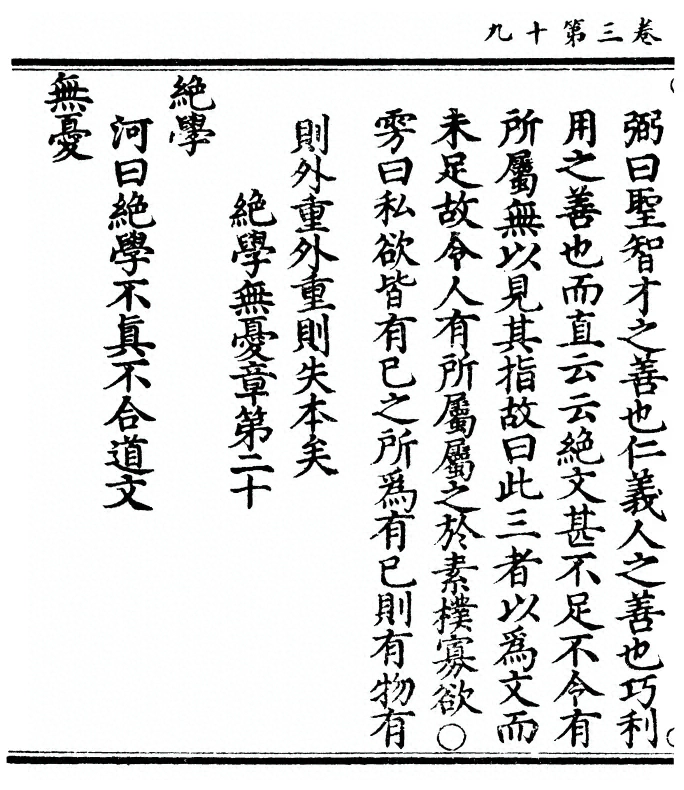 卷三第十九
弼曰聖智才之善也仁義人之善也巧利
用之善也而直云云絶文甚不足不令有
所屬無以見其指故曰此三者以爲文而
未足故令人有所屬屬之於素樸寡欲○
雱曰私欲皆有已之所爲有已則有物有
則外重外重則失本矣
絶學無憂章第二十
絶學
河曰絶學不眞不合道文
無憂